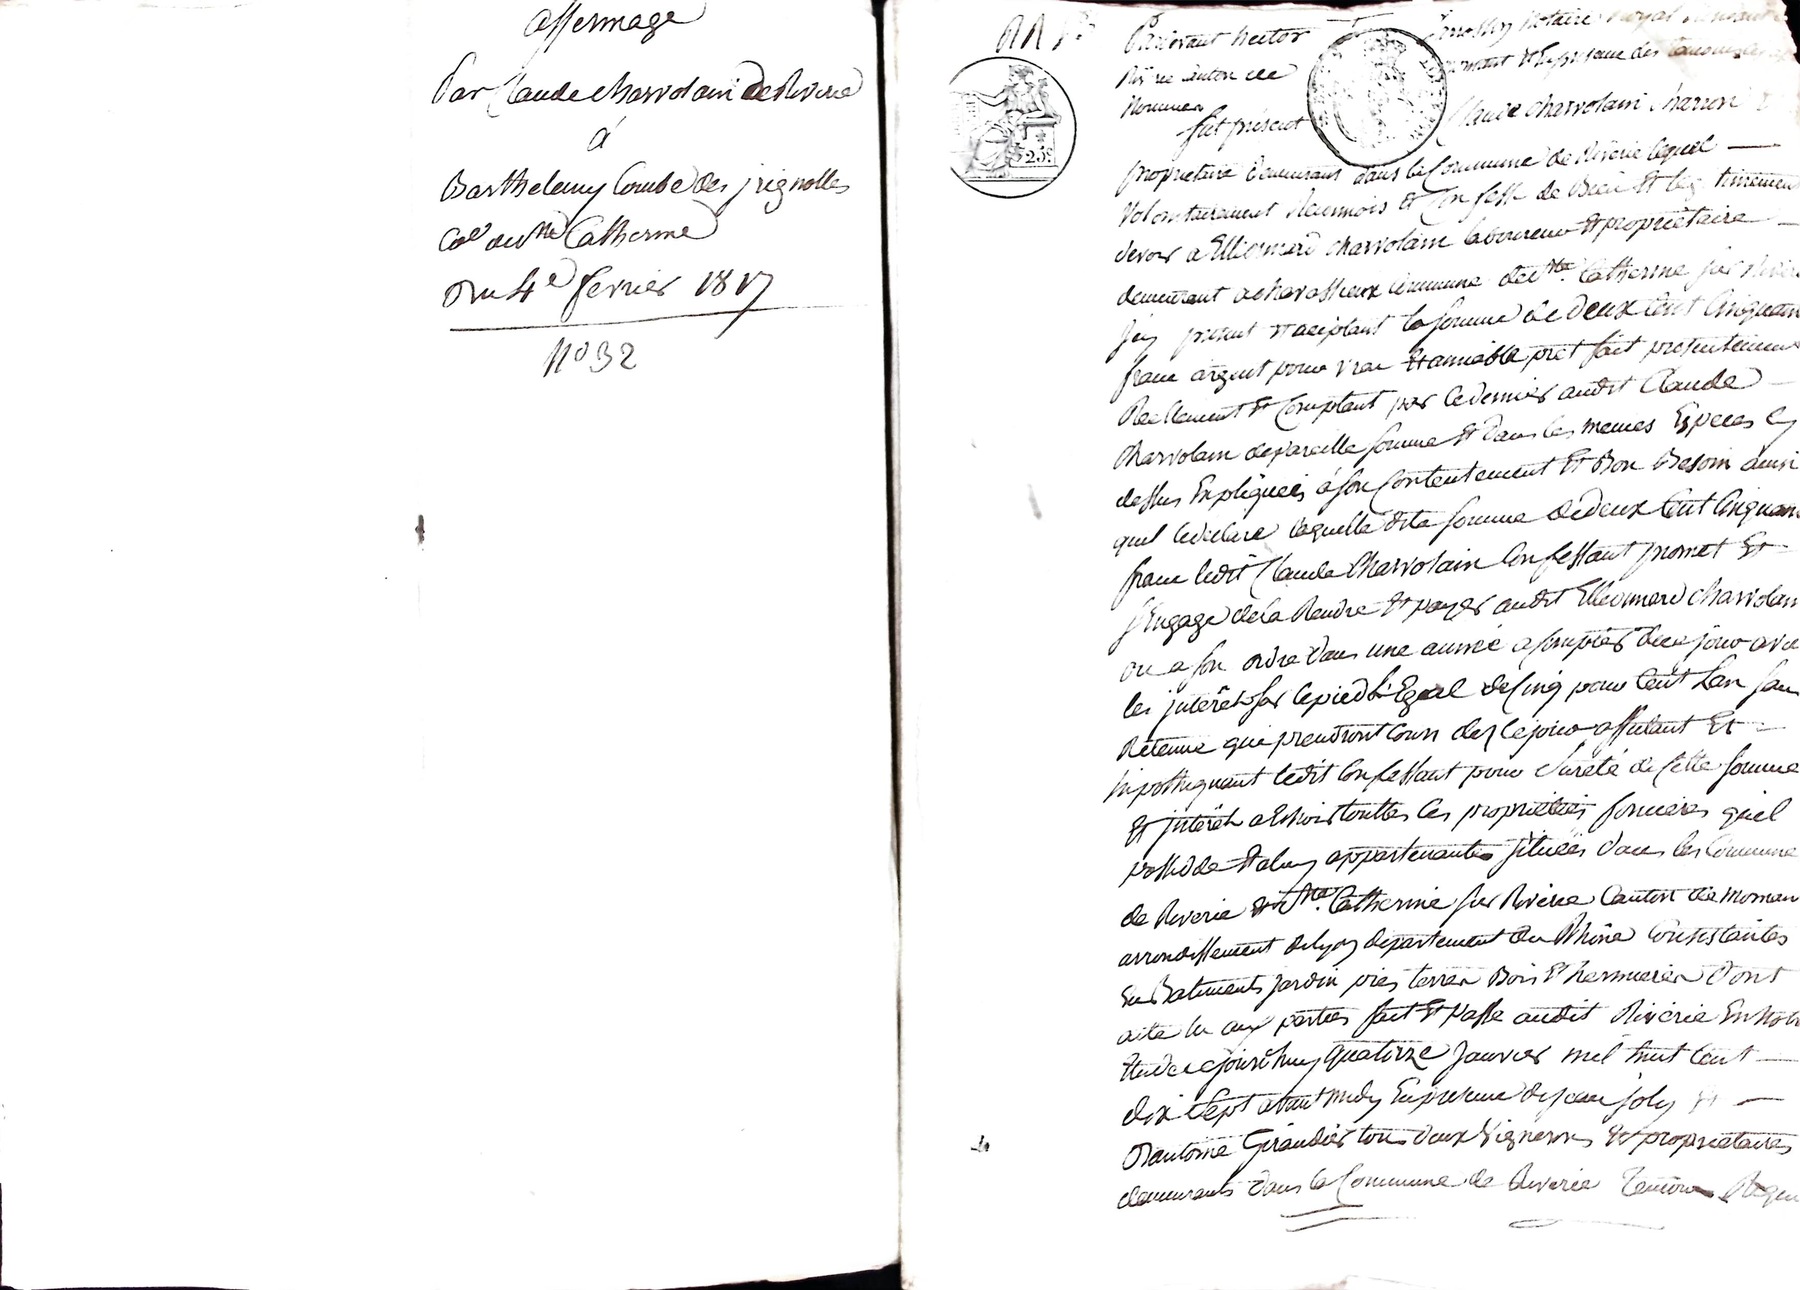 affermage
Par Claude charvolain de Riverie
á
Barthelemy Combe des jrignolles
Coe de Ste Catherine
Du 4e fevrier 1817
N° 32
Pardevant hector notaire royal
Riverie canton de
Mornan
fut présent Claude charvolain charron
proprietaire demeurant dans la Commune de Riverie lequel
Volontairement Reconnois et Confesse de Bien et legitimement
devoir a Elleonnard charvolain laboureur et propriètaire
demeurant a chavassieux commune de Ste. Catherine sur Riverie
jcy présent et aceptant la somme de deux Cent Cinquante
franc argent pour vrai et amiable prèt fait presentement
Reellement et Comptant par ce dernier audit Claude
Charvolain de pareille somme et dans les memes Especes cy
dessus Expliqueés á son Contentement et Bon Besoin ainsi
quil le declare laquelle dite somme de deux Cent Cinquante
franc ledit Claude Charvolain Confessant promet et
sEngage de la Rendre et payer audit Elleonnard charvolain
ou a son ordre dans une anneé a compter de ce jour avec
les jnterêts sur le pied lEgal de Cinq pour Cent Lan san
Retenue qui prendront Cours des ce jour affectant et
hipothequant ledit Confessant pour sureté de Cette somme
et jnterêts a Echoir touttes les propriétées foncieres quil
possede et a luy appartenantes situeés dans les Commune
de Riverie et Ste. Catherine sur Riverie Canton de mornan
arrondissement de lyon departement du Rhône Consistantes
En Batiments jardin prés terres Bois et hermieres Dont
acte lu aux parties fait et passe audit Riverie En notre
Etude ce jourdhuy quatorze Janvier mil huit Cent
dix Sept avant midy En presence de jean joly et
D'antoine Giraudier tous deux Vignerons et proprietaires
demeurants dans la Commune de Riverie Temoins Requi